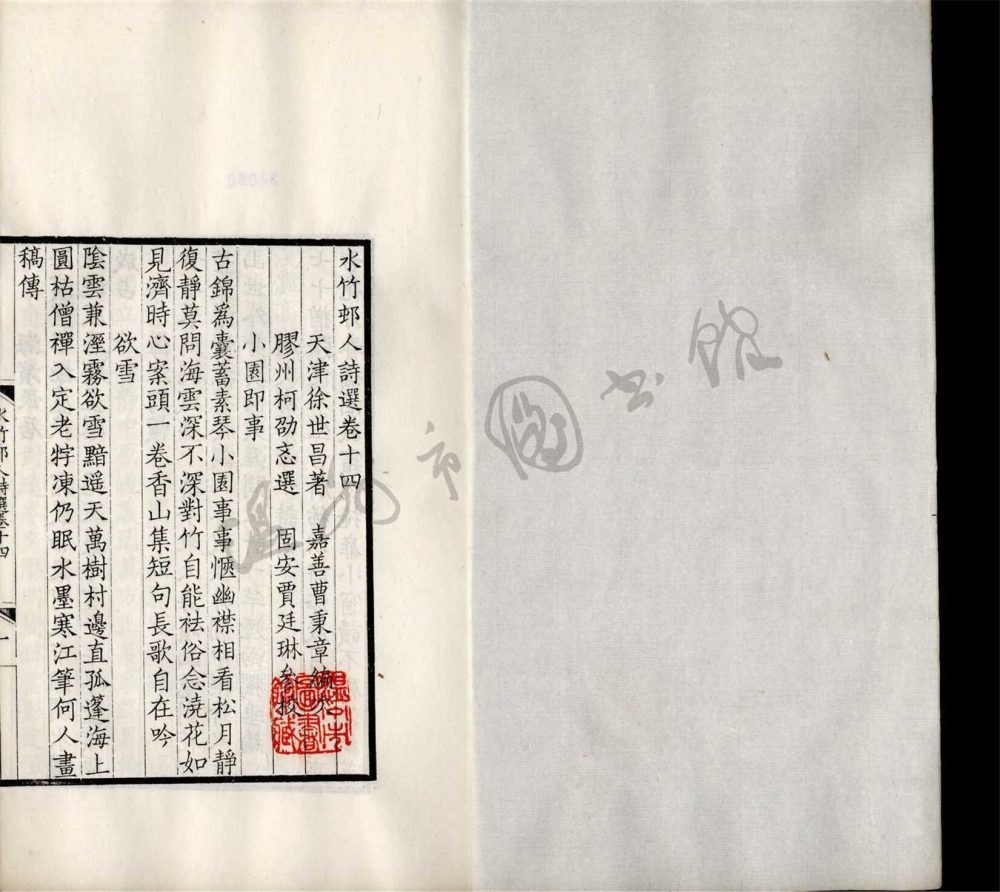 水竹邨人詩選卷十四
天津徐世昌著　嘉善曹秉章編次
膠州柯劭忞選　固安賈廷琳參校
小園即事
古錦爲囊蓄素琴小園事事愜幽襟相看松月靜
復靜莫問海雲深不深對竹自能祛俗念澆花如
見濟時心案頭一卷香山集短句長歌自在吟
欲雪
陰雲兼溼霧欲雪黯遥天萬樹村邊直孤蓬海上
圓枯僧禪入定老牸凍仍眠水墨寒江筆何人畫
稿傳
水竹邨人詩選卷十四
一
溫州市圖書館藏
溫州市圖書館